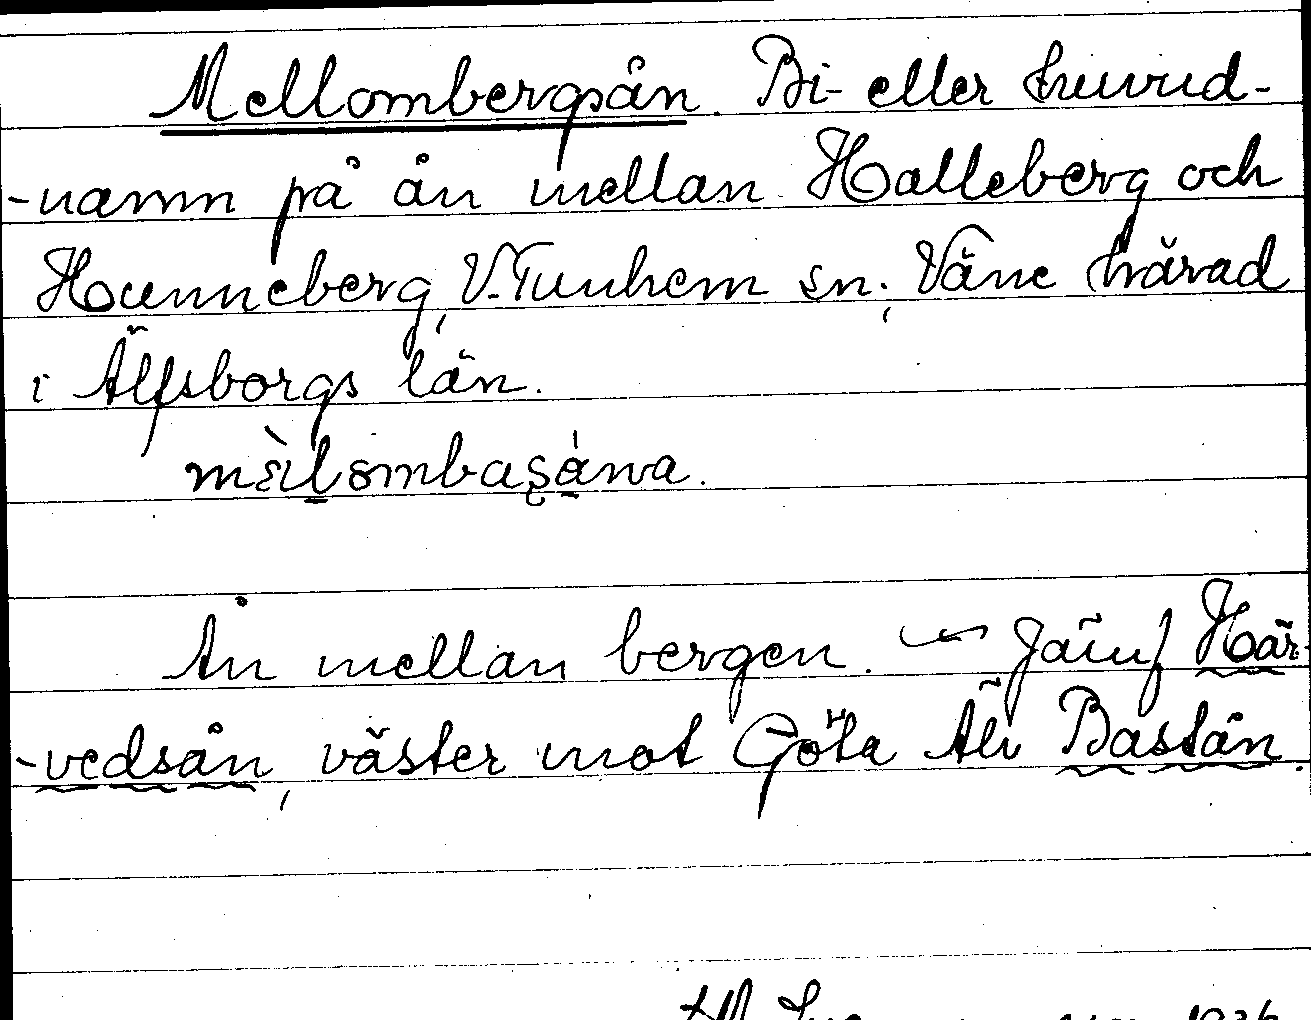 Mellombergsån. Bi- eller huvud-
-namn på ån mellan Halleberg och
Hunneberg, V. Tunhem sn; Väne härad
i Älfsborgs län.
Ån mellan bergen. Jämf Här-
-vedsån, väster mot Göta Älv Bastån.